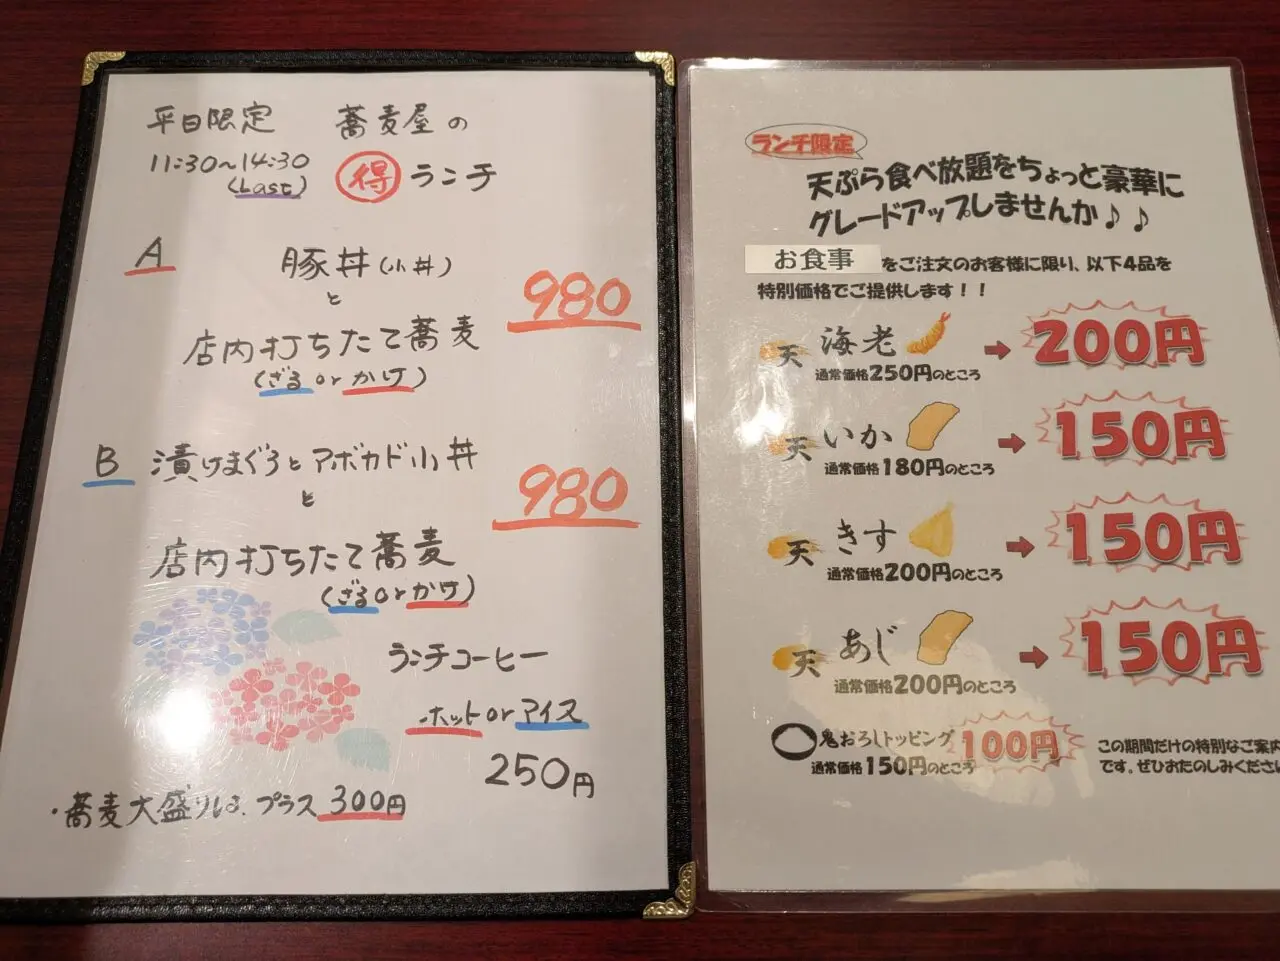 平日限定 蕎麦屋の
11:30~14:30 得 ランチ
(Last)
A 豚丼(小丼) 980
と
店内打ちたて蕎麦
(ざる or かけ)
B 漬けまぐろとアボカド小丼 980
と
店内打ちたて蕎麦
(ざる or かけ)
ランチコーヒー
ホット or アイス
250円
・蕎麦大盛りは、プラス300円
ランチ限定
天ぷら食べ放題をちょっと豪華に
グレードアップしませんか♪♪
お食事 をご注文のお客様に限り、以下4品を
特別価格でご提供します!!
天 海老 200円
通常価格250円のところ
天 いか 150円
通常価格180円のところ
天 きす 150円
通常価格200円のところ
天 あじ 150円
通常価格200円のところ
鬼おろしトッピング 100円
通常価格150円のところ
この期間だけの特別なご案内
です。ぜひおたのしみください